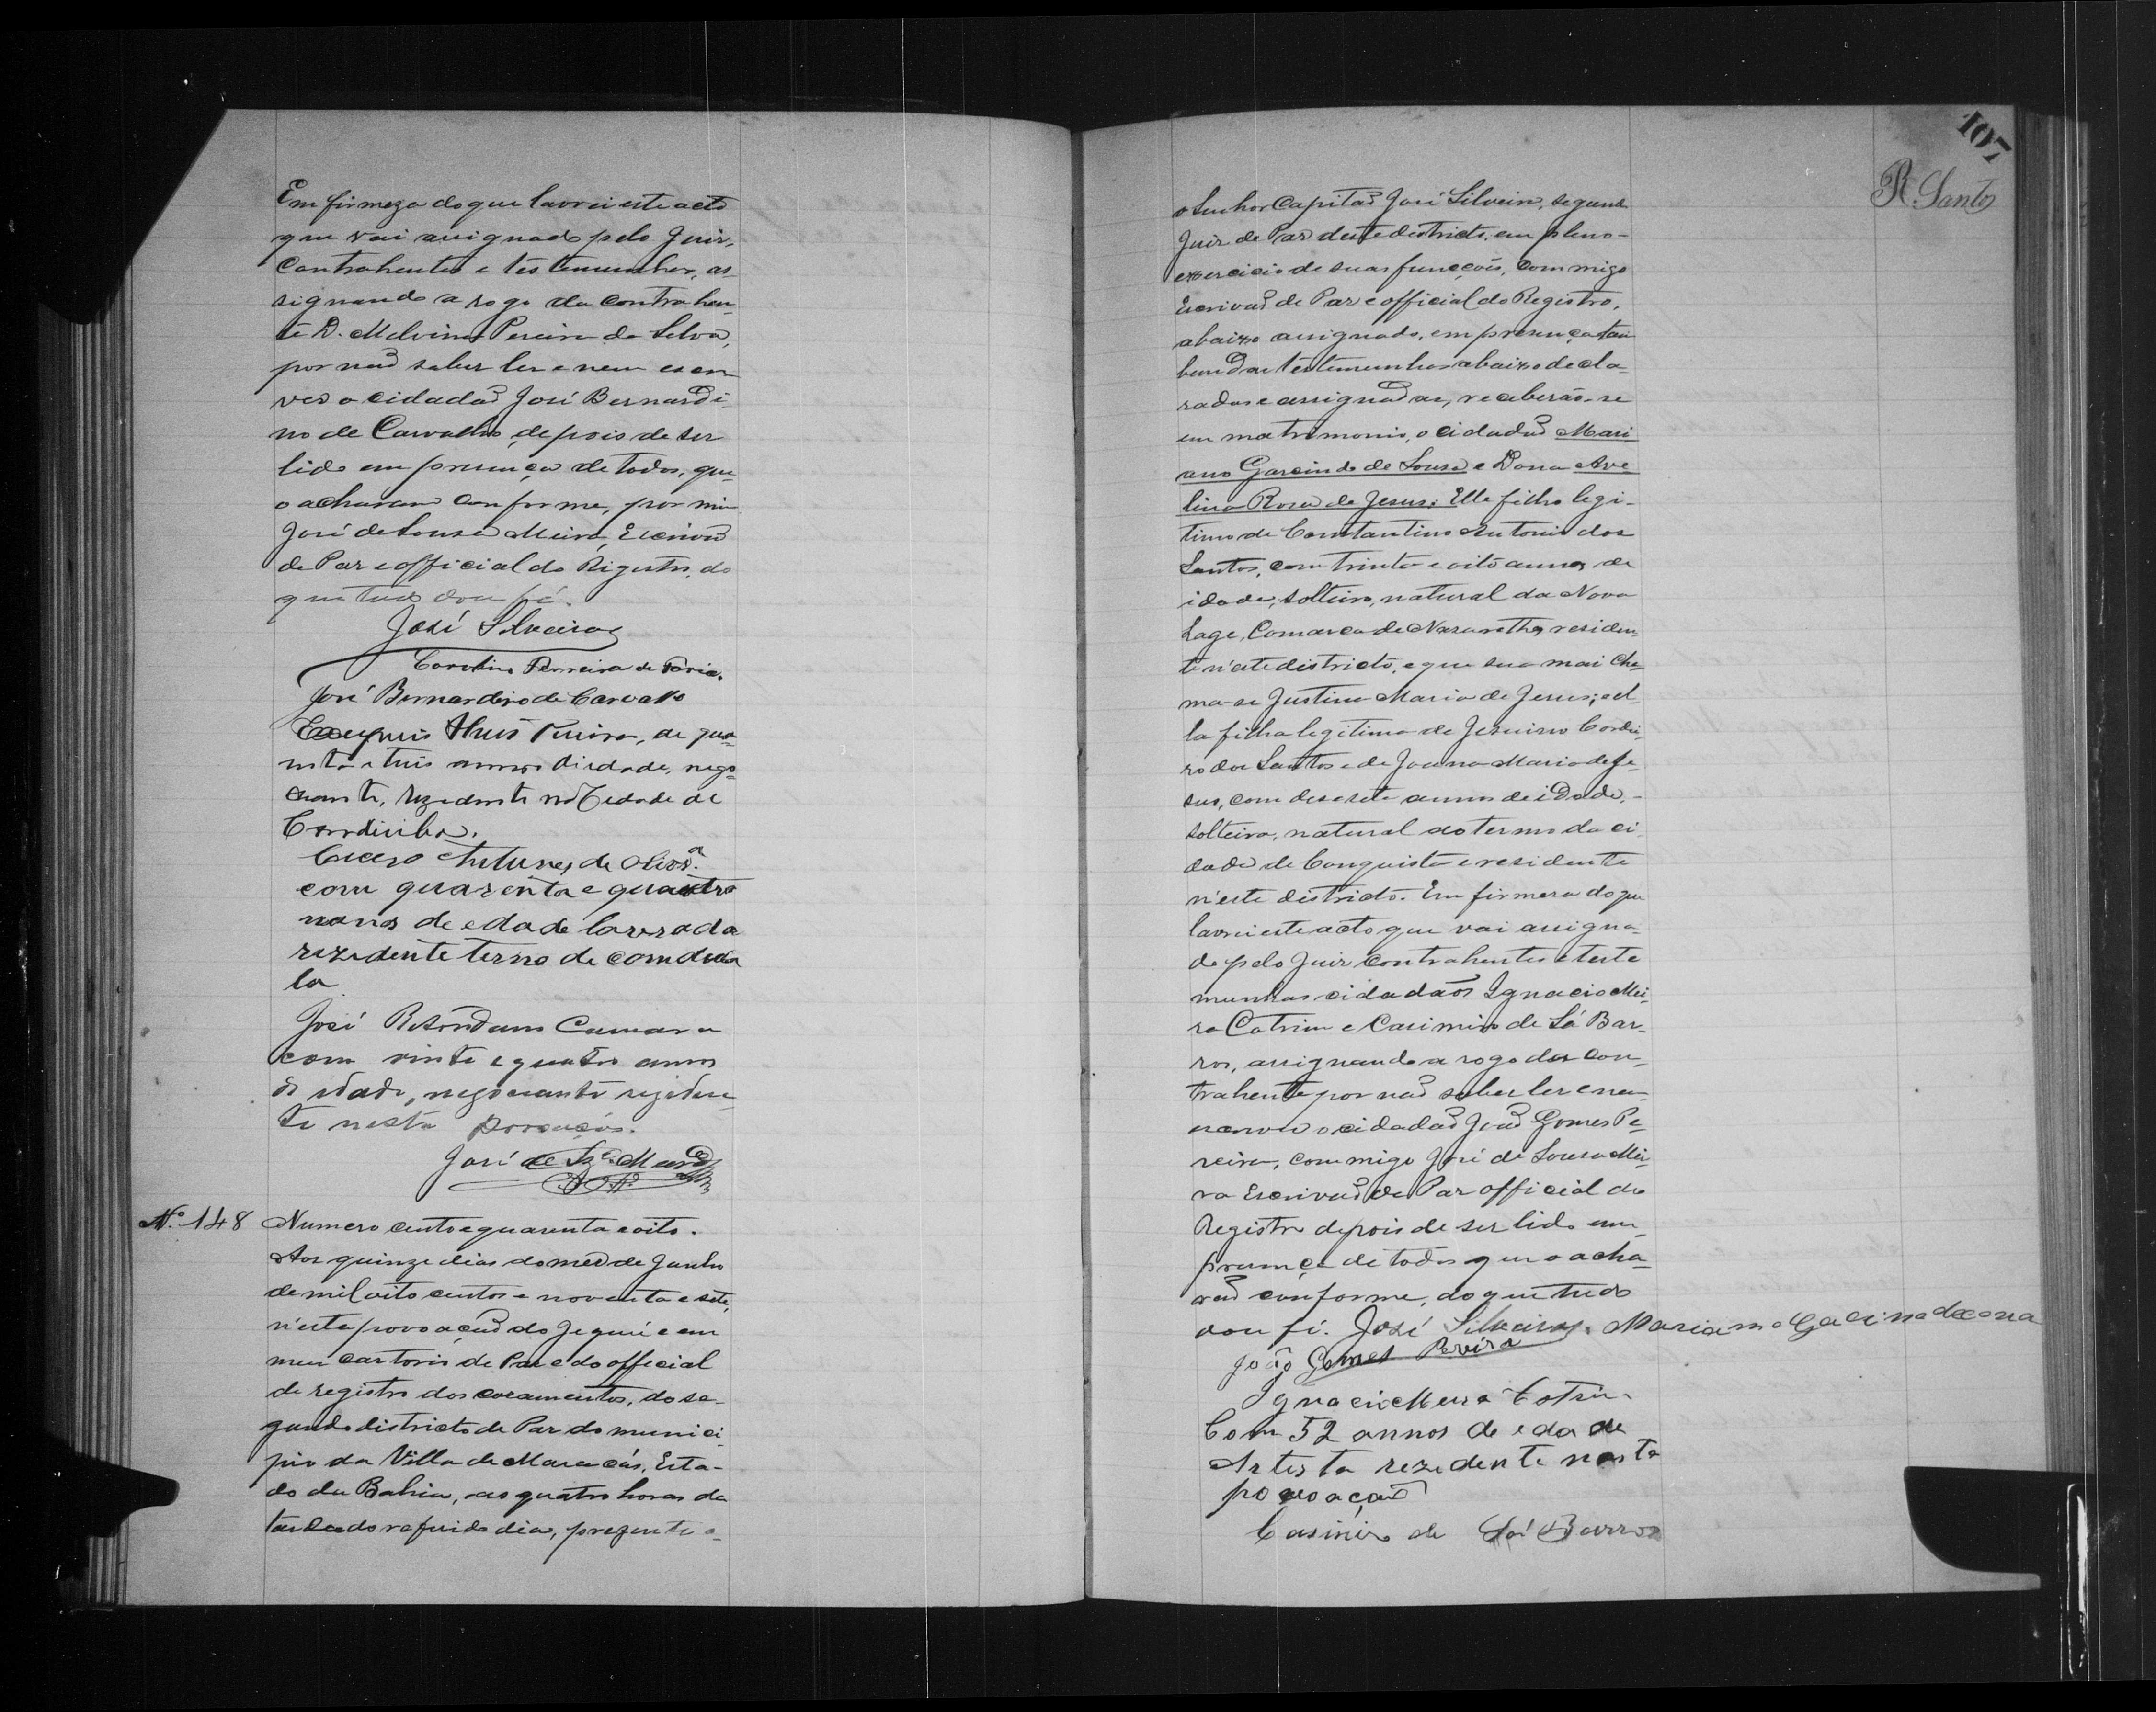 Em firmeza do que lavrei este acto
que vai assignado pelo Juiz,
Contrahentes e testemunhas, as
signando a rogo da contrahen
te D. Melvina Pereira da Silva,
por não saber ler e nem escre
ver o cidadão José Bernardi
no de Carvalho, depois de ser
lido em presença de todos, que
o acharam conforme, por mim
José de Sousa Meira, Escrivão
de Paz e official do Registro, do
que tudo dou fé.
José Silveira
Ferreira de Faria.
José Bernardino de Carvalho
de qua
renta e tres annos de idade, nego
ciante, rezidente na Cidade de
Antunes de Olivrª
com quarenta e quatro
nanos de edade lavrada
rezidente termo de
José Camara
com vinte e quatro annos
de idade, negociante reziden
te nesta povoação.
José de Sz.ª Meira
Nº 148 Numero cento e quarenta e oito.
Aos quinze dias do mez de Junho
de mil oito centos e noventa e sete,
n'esta povoação do Jequié e em
meu cartorio de Paz e do official
de registro dos casamentos, do se-
gundo districto de Paz do munici-
pio da Villa de Maracás, Esta-
do da Bahia, as quatro horas da
tarde do referido dia, prezente o
107
R. Santos
o Senhor Capitão José Silveira, segundo
Juiz de Paz deste districto, em pleno-
exercicio de suas funcções, commigo
Escrivão de Paz e official do Registro,
abaixo assignado, em presença tam
bem das testemunhas abaixo decla-
radas e assignadas, receberão-se
em matrimonio, o cidadão Mari
ano Garcindo de Sousa e Dona Ave
lina Rosa de Jesus: Elle filho legi-
timo de Constantino Antonio dos
Santos, com trinta e oito annos de
idade, solteiro, natural da Nova
Lage, Comarca de Nazareth, residen
te n'este districto, e que sua mai cha
ma-se Justina Maria de Jesus; el
la filha legitima de Jesuino Cordei
ro dos Santos e de Joanna Maria de Je-
sus, com desesete annos de idade,-
solteira, natural do termo da ci
dade de Conquista e residente
n'este districto. Em firmeza do que
lavrei este acto que vai assigna-
do pelo Juiz contrahentes e teste
munhas cidadãos Ignacio Mei-
ra Cotrim e Casimiro de Sá Bar-
ros, assignando a rogo da con-
trahente por não saber ler e nem
escrever o cidadão João Gomes Pe-
reira, commigo José de Sousa Mei-
ra Escrivão de Paz official do
Registro depois de ser lido em
presença de todos que o acha-
rão conforme, do que tudo
dou fé. José Silveira. Mariano
João Gomes Pereira
Ignacio Meira Cotrim
Com 52 annos de edade
Artista rezidente nesta
povoação
Casimiro de Sá Barros